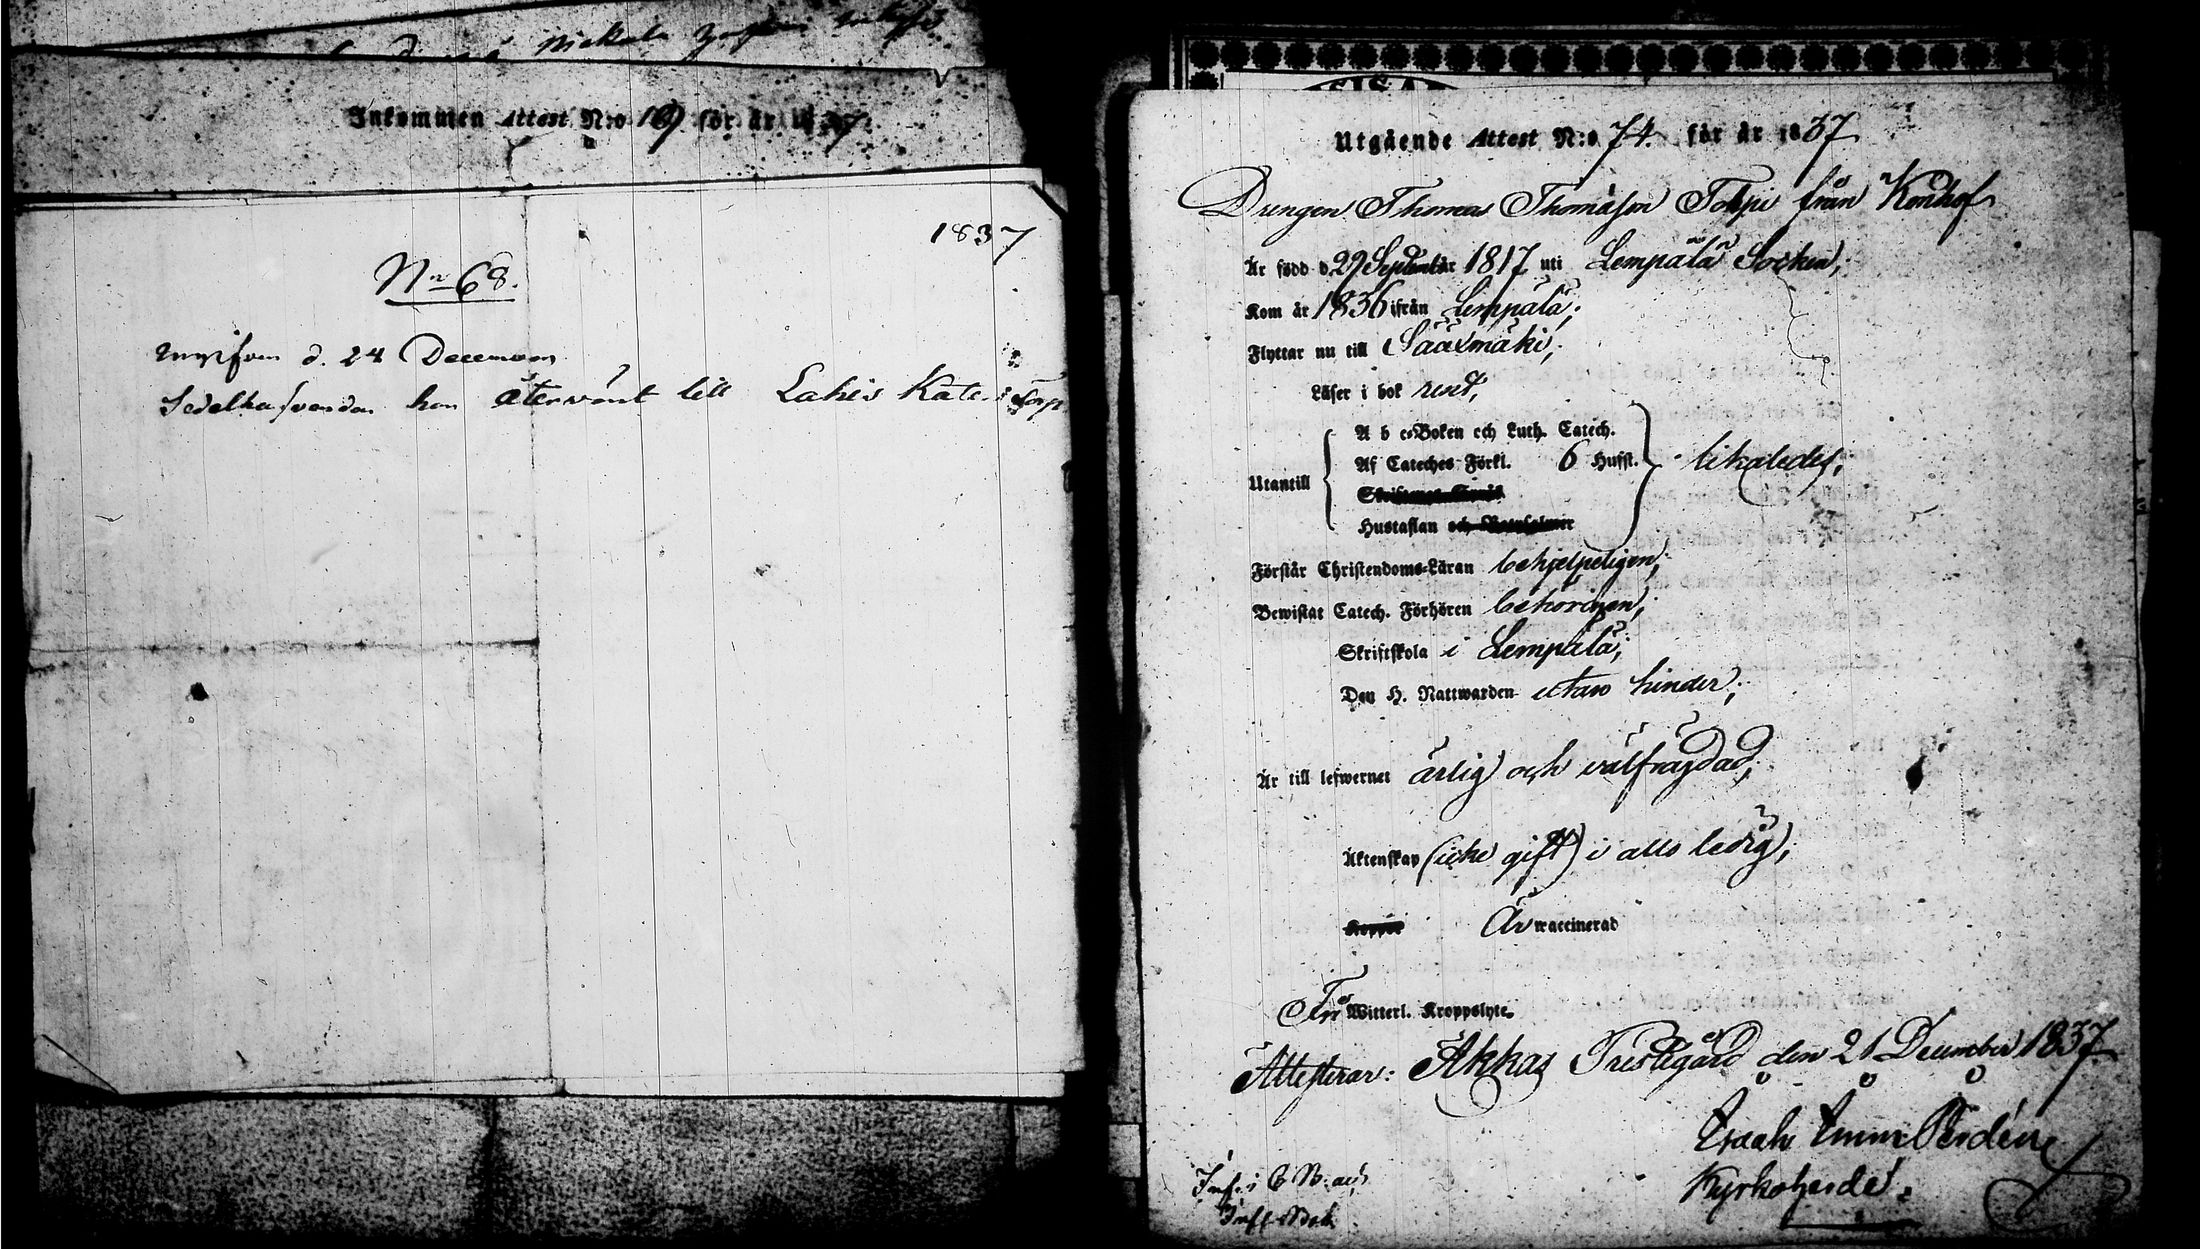 Inkommen Attest N:o 19 för år 1837
1837
Nr 68.
d. 24 December
Sedelhafvanden har återvänt till Lahis Kate
Utgående Attest N:o 74. för år 1837
Drengen Thomas Thomasson Tolpi från Konhof
Är född d. 29 September 1817 uti Lempälä Socken,
Kom år 1836 ifrån Lempälä;
Flyttar nu till Sääxmäki;
Läser i bok rent,
A b c-Boken och Luth. Catech.
Af Cateches Förkl. 6 Hufst. likaledes,
Utantill
Hustaflan
Förstår Christendoms-Läran behjelpeligen;
Bewistat Catech. Förhören behörigen;
Skriftskola i Lempälä;
Den H. Nattwarden utan hinder;
Är till lefwernet ärlig och välfrägdad;
Äktenskap (icke gift) i allo ledig;
Är vaccinerad
Fri Witterl. Kroppslyte.
Attesterar: Akkas Prestegård den 21 December 1837
Isaak Emin
Kyrkoherde.